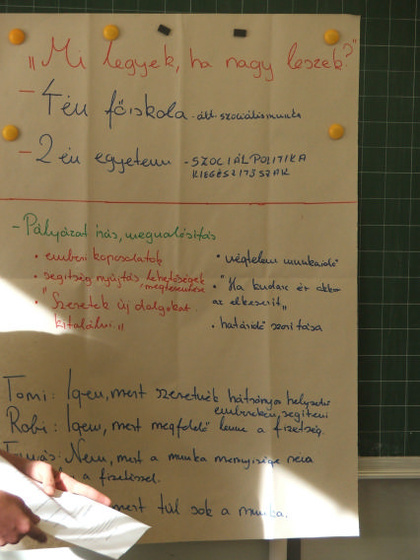 „Mi legyek, ha nagy leszek?”
- 4 év főiskola - ált. szociális munka
- 2 év egyetem - SZOCIÁLPOLITIKA
KIEGÉSZÍTŐ SZAK
- Pályázat írás, megvalósítás
• emberi kapcsolatok
• segítség nyújtás lehetőségek
megteremtése
• "Szeretek új dolgokat
kitalálni."
• végtelen munkaidő
• "Ha kudarc ér akkor
az elkeserít"
• határidő szorítása
Tomi: Igen, mert szeretnék hátrányos helyzetű
embereken segíteni
Robi: Igen, mert megfelelő lenne a fizetség.
Tamás: Nem, mert a munka mennyisége nem
a fizetéssel.
mert túl sok a munka.